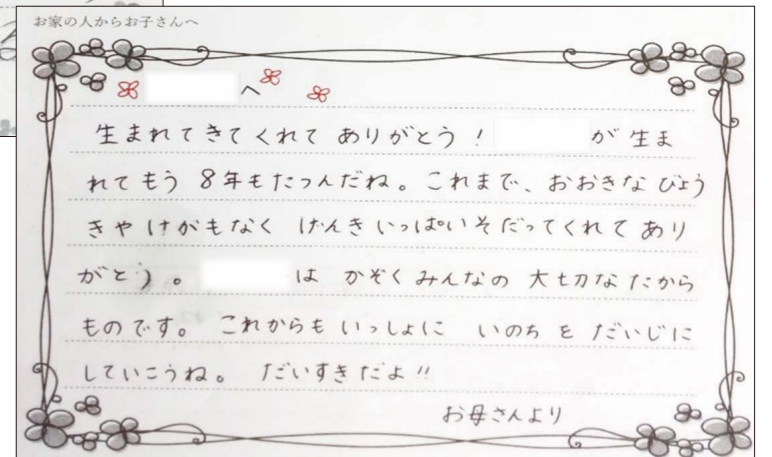 お家の人からお子さんへ
へ
生まれてきてくれて ありがとう! が 生ま
れてもう 8年もたつんだね。これまで、おおきな びょう
きや けがもなく げんきいっぱいそだってくれて あり
がとう。 は かぞくみんなの 大切な たから
ものです。 これからも いっしょに いのち を だいじに
していこうね。 だいすきだよ!!
お母さんより